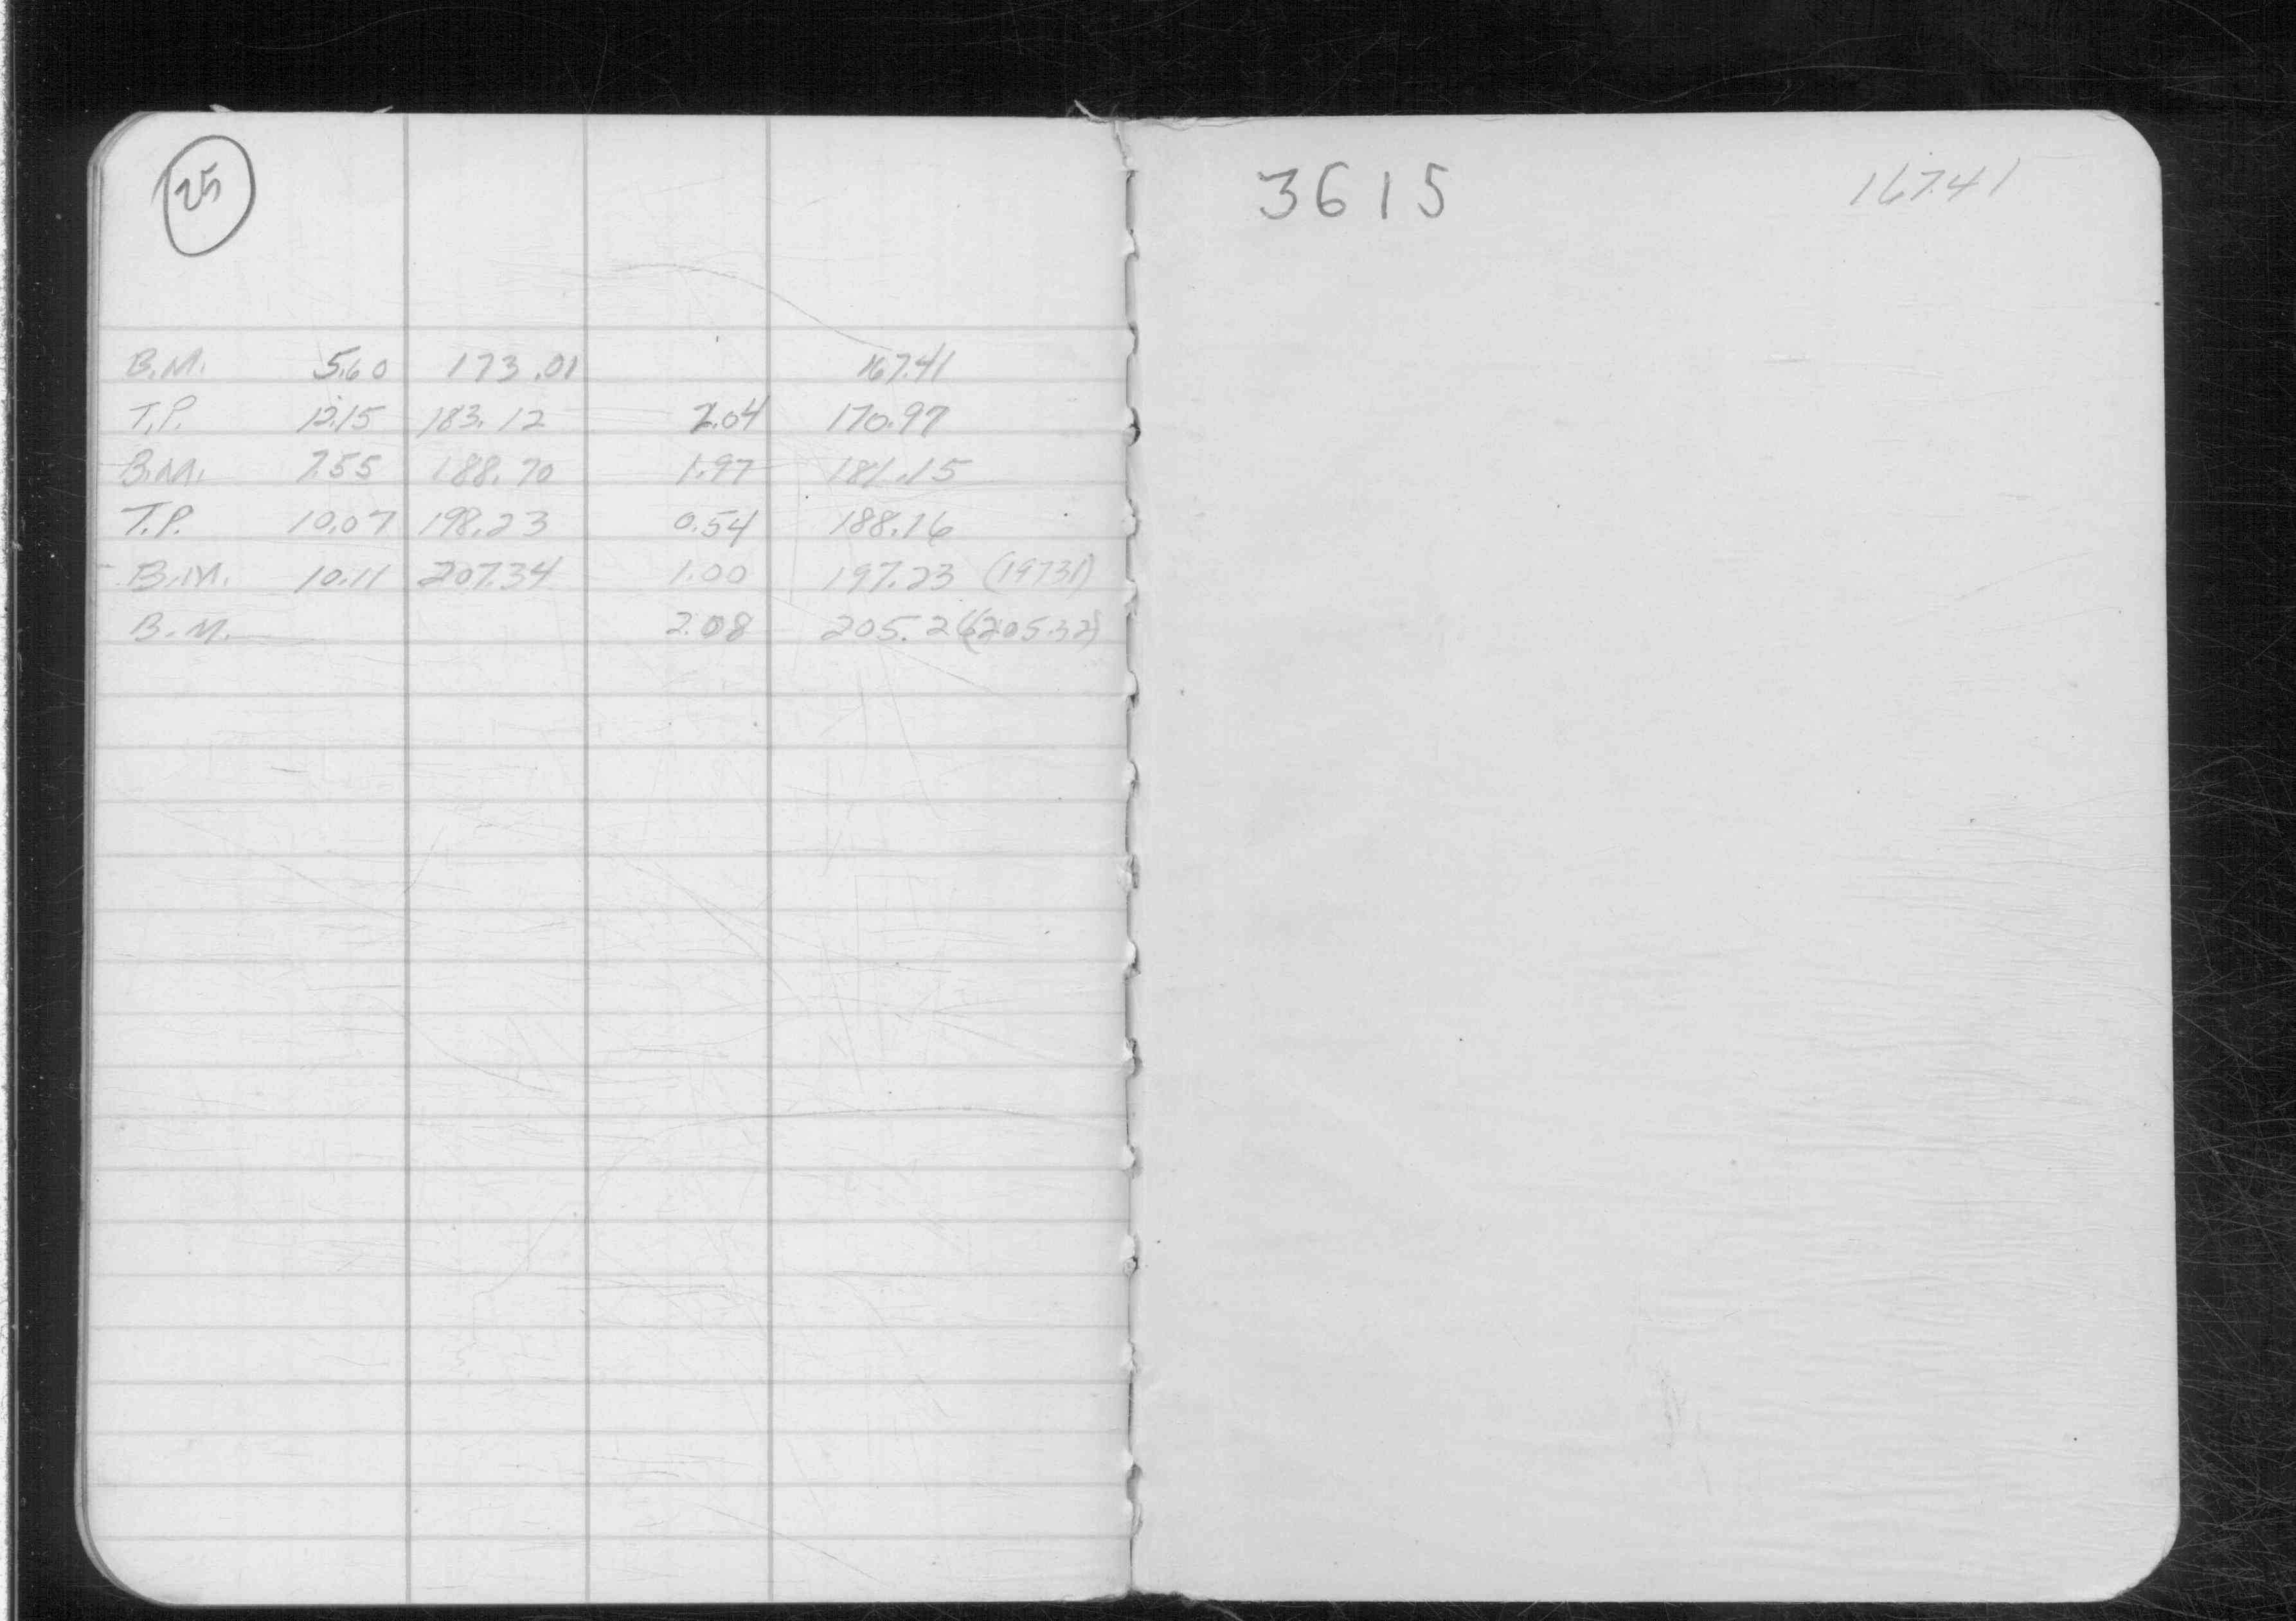 25
B.M. 5.60 173.01 167.41
T.P. 12.15 183.12 2.04 170.97
B.M. 7.55 188.70 1.97 181.15
T.P. 10.07 198.23 0.54 188.16
B.M. 10.11 207.34 1.00 197.23 (197.31)
B.M. 2.08 205.26 (205.32)
3615 167.41